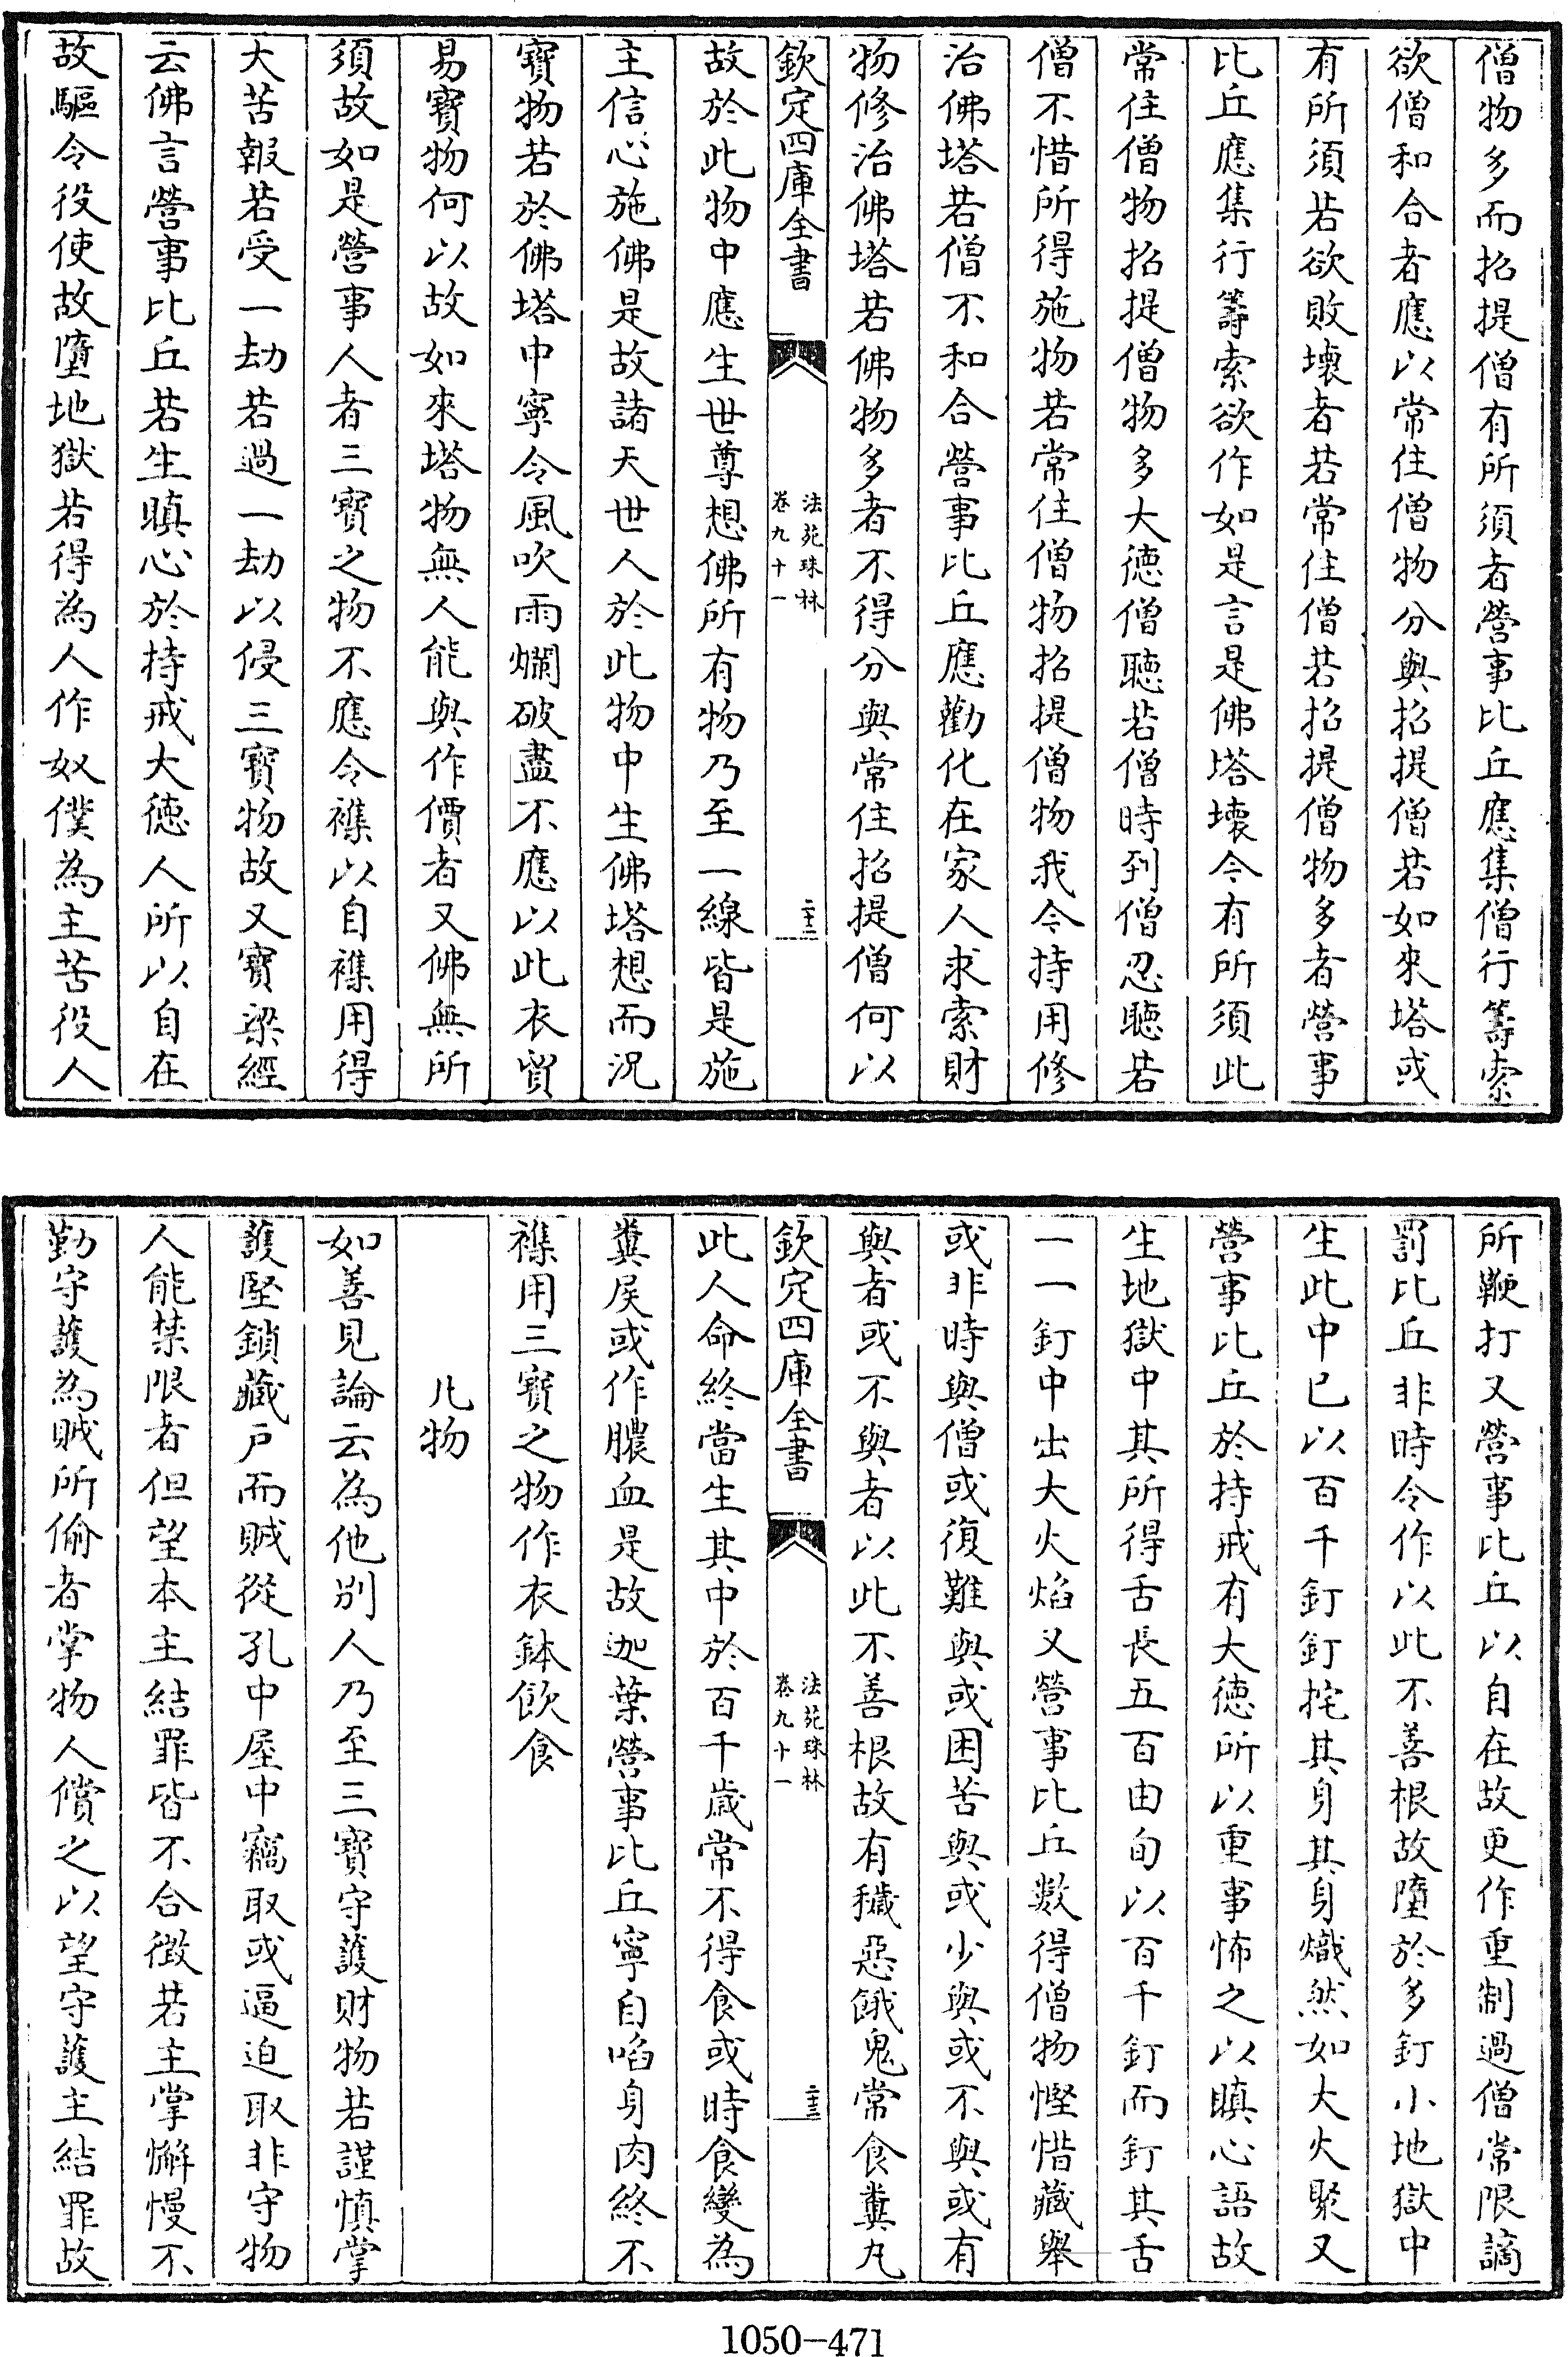 僧物多而招提僧有所須者營事比丘應集僧行籌索
欲僧和合者應以常住僧物分與招提僧若如來塔或
有所須若欲敗壞者若常住僧若招提僧物多者營事
比丘應集行籌索欲作如是言是佛塔壞今有所須此
常住僧物招提僧物多大德僧聽若僧時到僧忍聽若
僧不惜所得施物若常住僧物招提僧物我今持用修
治佛塔若僧不和合營事比丘應勸化在家人求索財
物修治佛塔若佛物多者不得分與常住招提僧何以
欽定四庫全書
法苑珠林
卷九十一
二十二
故於此物中應生世尊想佛所有物乃至一線皆是施
主信心施佛是故諸天世人於此物中生佛塔想而況
寶物若於佛塔中寧令風吹雨爛破盡不應以此衣貿
易寶物何以故如來塔物無人能與作價者又佛無所
須故如是營事人者三寶之物不應令襍以自襍用得
大苦報若受一劫若過一劫以侵三寶物故又寶梁經
云佛言營事比丘若生瞋心於持戒大德人所以自在
故驅令役使故墮地獄若得為人作奴僕為主苦役人
所鞭打又營事比丘以自在故更作重制過僧常限謫
罰比丘非時令作以此不善根故墮於多釘小地獄中
生此中已以百千釘釘挓其身其身熾然如大火聚又
營事比丘於持戒有大德所以重事怖之以瞋心語故
生地獄中其所得舌長五百由旬以百千釘而釘其舌
一一釘中出大火焰又營事比丘數得僧物慳惜藏舉
或非時與僧或復難與或困苦與或少與或不與或有
與者或不與者以此不善根故有穢惡餓鬼常食糞丸
欽定四庫全書
法苑珠林
卷九十一
二十三
此人命終當生其中於百千歲常不得食或時食變為
糞屎或作膿血是故迦葉營事比丘寧自啗身肉終不
襍用三寶之物作衣鉢飲食
凡物
如善見論云為他別人乃至三寶守護財物若謹慎掌
護堅鎖藏戶而賊從孔中屋中竊取或逼迫取非守物
人能禁限者但望本主結罪皆不合徵若主掌懈慢不
勤守護為賊所偷者掌物人償之以望守護主結罪故
1050-471